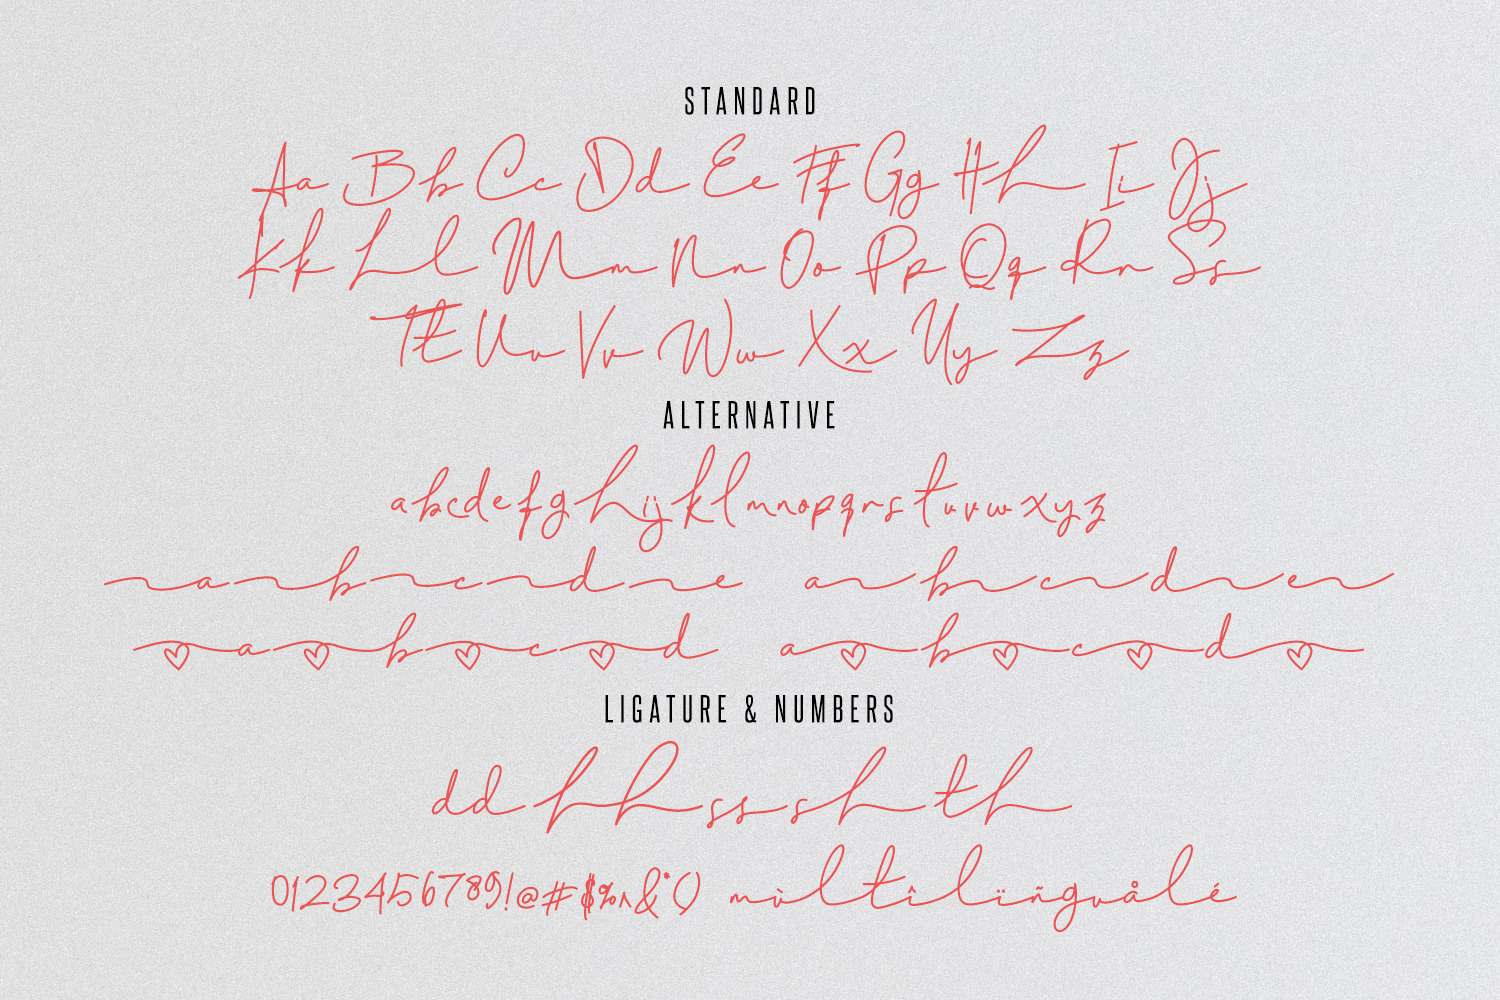 STANDARD
Aa Bb Cc Dd Ee Ff Gg Hh Ii Jj
Kk Ll Mm Nn Oo Pp Qq Rr Ss
Tt Uu Vv Ww Xx Yy Zz
ALTERNATIVE
abcdefghijklmnopqrstuvwxyz
a b c d e a b c d e
a b c d a b c d
LIGATURE & NUMBERS
dd hh ss sh th
0123456789!@#$%^&*() mùltîlïñguålé